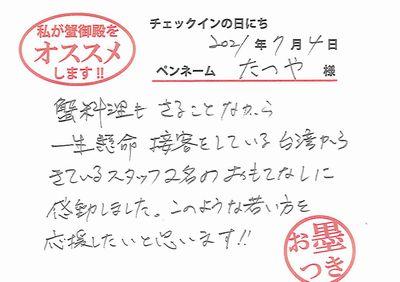 私が蟹御殿を
オススメ
します!!
チェックインの日にち
2021年7月4日
ペンネーム たつや 様
蟹料理も さることながら
一生懸命 接客をしている 台湾から
きているスタッフ2名のおもてなしに
感動しました。このような若い方を
応援したいと思います!!
お墨
つき